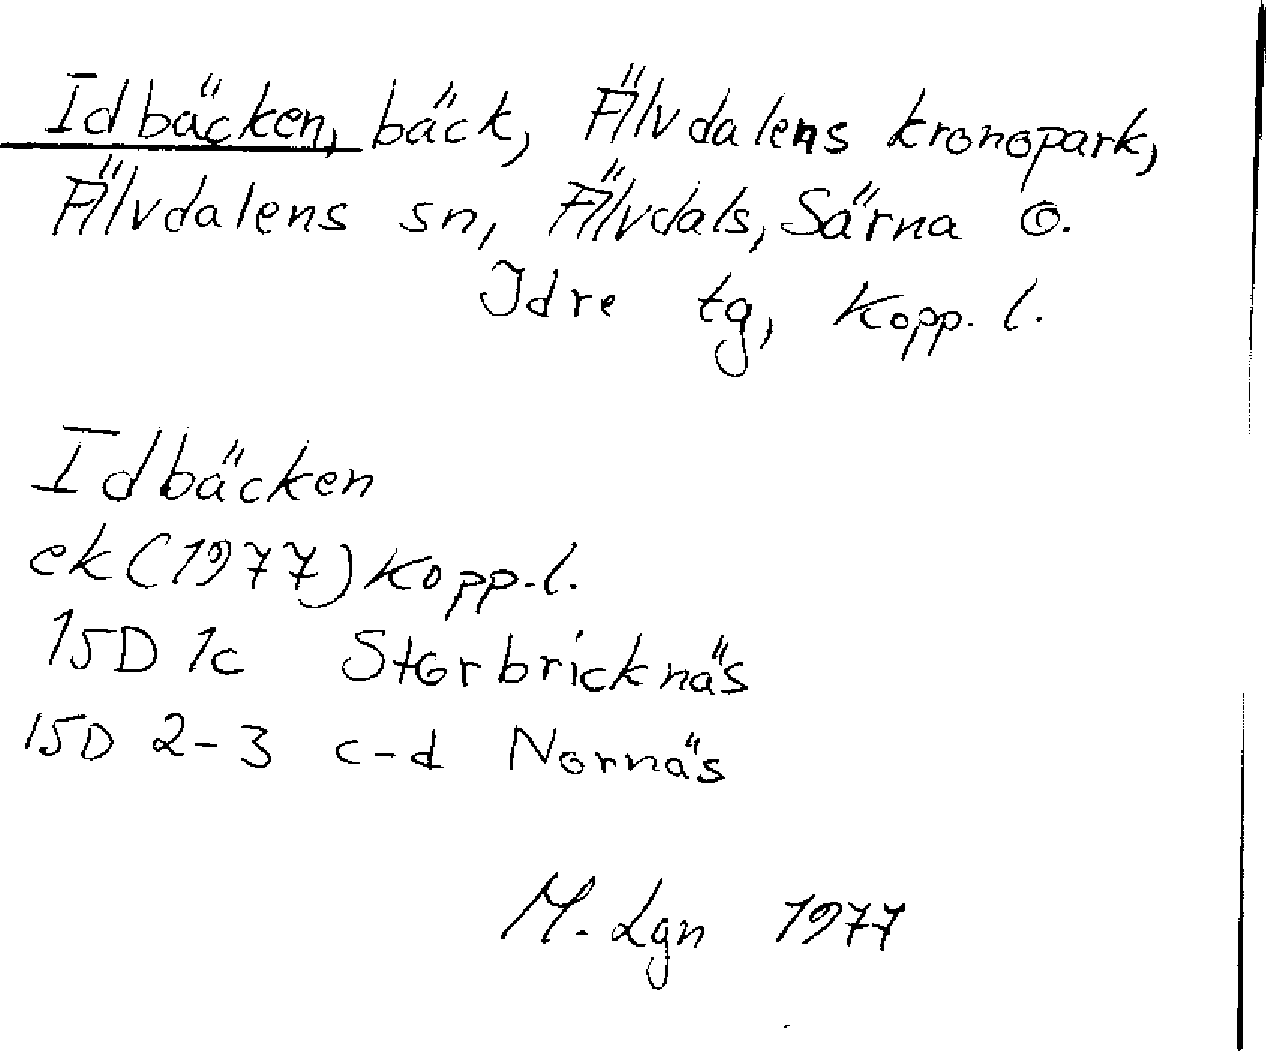 Idbäcken, bäck, Älvdalens kronopark,
Älvdalens sn, Älvdals, Särna o.
Idre tg, Kopp. l.
Idbäcken
ek (1977) Kopp. l.
15D 1c Storbricknäs
15D 2-3 c-d Nornäs
M. Lgn 1977